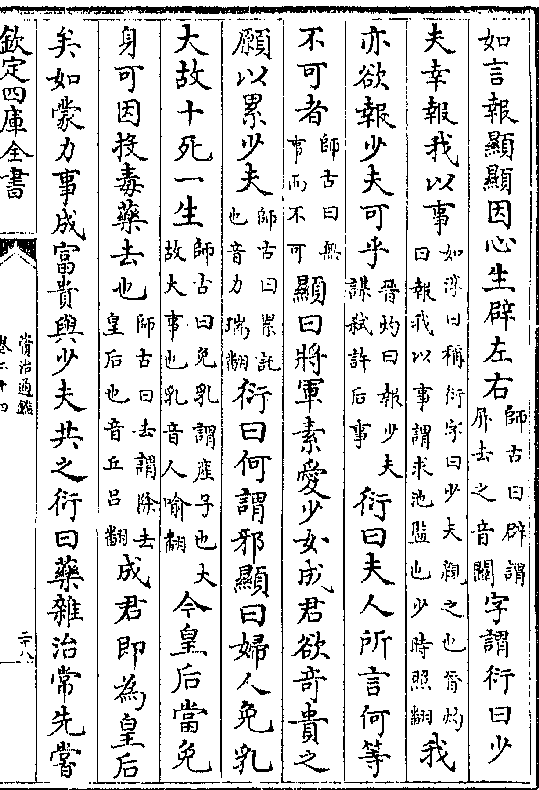 如言報顯顯因心生辟左右師古曰辟謂屏去之音闢字謂衍曰少
夫幸報我以事如淳曰稱衍字曰少夫親之也晉灼曰報我以事謂求池監也少時照翻我
亦欲報少夫可乎晉灼曰報少夫謀弑許后事衍曰夫人所言何等
不可者師古曰無事而不可顯曰將軍素愛少女成君欲奇貴之
願以累少夫師古曰累託也音力瑞翻衍曰何謂邪顯曰婦人免乳
大故十死一生師古曰免乳謂產子也大故大事也乳音人喻翻今皇后當免
身可因投毒藥去也師古曰去謂除去皇后也音丘吕翻成君即為皇后
矣如蒙力事成富貴與少夫共之衍曰藥雜治常先嘗
欽定四庫全書
資治通鑑
卷二十四
二十八